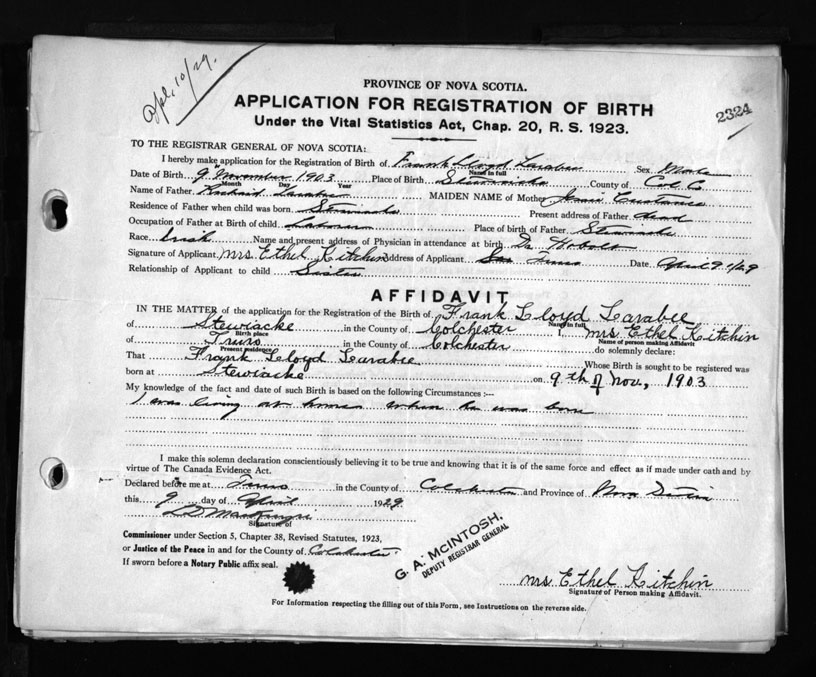 Apl. 10/29.
PROVINCE OF NOVA SCOTIA.
2324
APPLICATION FOR REGISTRATION OF BIRTH
Under the Vital Statistics Act, Chap. 20, R. S. 1923.
TO THE REGISTRAR GENERAL OF NOVA SCOTIA:
I hereby make application for the Registration of Birth of Frank Lloyd Larabee Sex Male
Name in full
Date of Birth 9 November 1903 Place of Birth Stewiacke County of Col Co
Month Day Year
Name of Father Larabee MAIDEN NAME of Mother Custance
Residence of Father when child was born Stewiacke Present address of Father dead
Occupation of Father at Birth of child Laborer Place of birth of Father Stewiacke
Race Irish Name and present address of Physician in attendance at birth Dr
Signature of Applicant Mrs Ethel Kitchin Address of Applicant Truro Date April 9th/29
Relationship of Applicant to child Sister
AFFIDAVIT
IN THE MATTER of the application for the Registration of the Birth of Frank Lloyd Larabee
Name in full
of Stewiacke in the County of Colchester I, Mrs Ethel Kitchin
Birth place Name of person making Affidavit
of Truro in the County of Colchester do solemnly declare:
Present residence
That Frank Lloyd Larabee Whose Birth is sought to be registered was
born at Stewiacke on 9th of Nov, 1903
My knowledge of the fact and date of such Birth is based on the following Circumstances :—
I was living at home when he was born
I make this solemn declaration conscientiously believing it to be true and knowing that it is of the same force and effect as if made under oath and by
virtue of The Canada Evidence Act.
Declared before me at Truro in the County of Colchester and Province of Nova Scotia
this 9 day of April 1929
L D MacKenzie
Signature of
Commissioner under Section 5, Chapter 38, Revised Statutes, 1923,
or Justice of the Peace in and for the County of Colchester
If sworn before a Notary Public affix seal.
G. A. McINTOSH,
DEPUTY REGISTRAR GENERAL
Mrs Ethel Kitchin
Signature of Person making Affidavit.
For Information respecting the filling out of this Form, see Instructions on the reverse side.